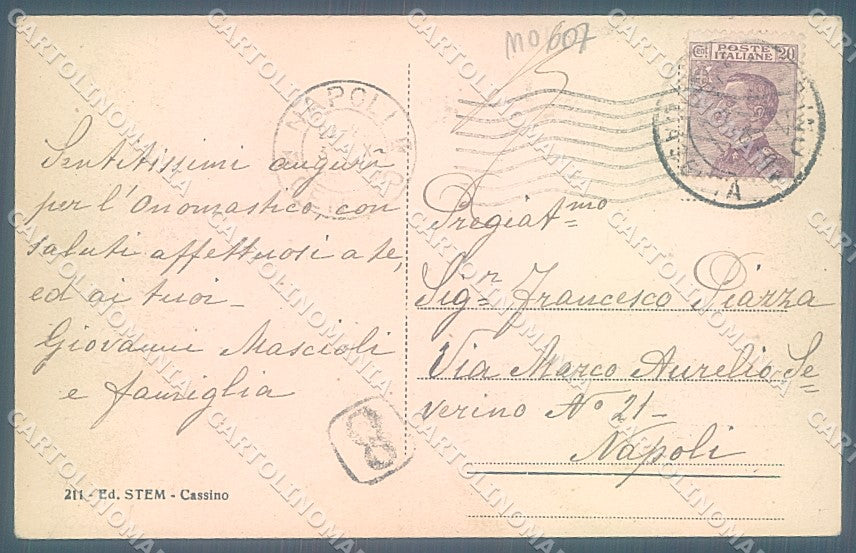 MO 607
POSTE
ITALIANE
Cent 20
NAPOLI
Sentitissimi auguri
per l'Onomastico, con
saluti affettuosi a te,
ed ai tuoi_
Giovanni Mascioli
e famiglia
8
211 - Ed. STEM - Cassino
Pregiat=mo
Sig=r Francesco Piazza
Via Marco Aurelio Se=
verino N° 21_
Napoli
CARTOLINOMANIA